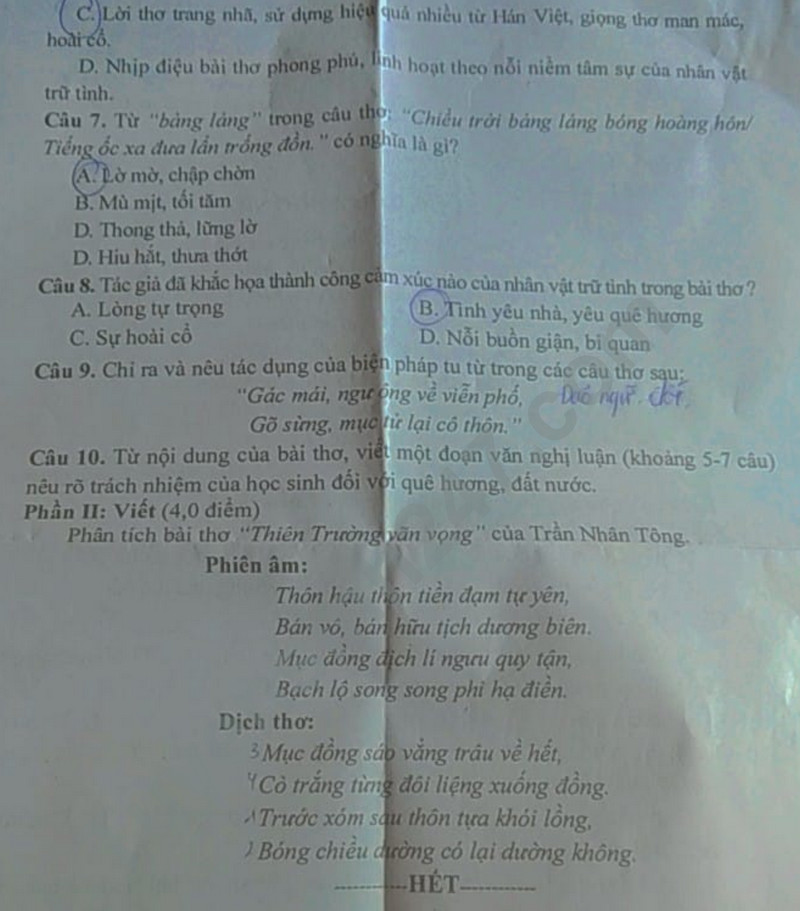 C. Lời thơ trang nhã, sử dụng hiệu quả nhiều từ Hán Việt, giọng thơ man mác,
hoài cổ.
D. Nhịp điệu bài thơ phong phú, linh hoạt theo nỗi niềm tâm sự của nhân vật
trữ tình.
Câu 7. Từ "bảng lảng" trong câu thơ: "Chiều trời bảng lảng bóng hoàng hôn/
Tiếng ốc xa đưa lẩn trống đồn." có nghĩa là gì?
A. Lờ mờ, chập chờn
B. Mù mịt, tối tăm
D. Thong thả, lững lờ
D. Hiu hắt, thưa thớt
Câu 8. Tác giả đã khắc họa thành công cảm xúc nào của nhân vật trữ tình trong bài thơ?
A. Lòng tự trọng
B. Tình yêu nhà, yêu quê hương
C. Sự hoài cổ
D. Nỗi buồn giận, bi quan
Câu 9. Chỉ ra và nêu tác dụng của biện pháp tu từ trong các câu thơ sau:
"Gác mái, ngư ông về viễn phố,
Gõ sừng, mục tử lại cô thôn."
Câu 10. Từ nội dung của bài thơ, viết một đoạn văn nghị luận (khoảng 5-7 câu)
nêu rõ trách nhiệm của học sinh đối với quê hương, đất nước.
Phần II: Viết (4,0 điểm)
Phân tích bài thơ "Thiên Trường vãn vọng" của Trần Nhân Tông.
Phiên âm:
Thôn hậu thôn tiền đạm tự yên,
Bán vô, bán hữu tịch dương biên.
Mục đồng địch lí ngưu quy tận,
Bạch lộ song song phi hạ điền.
Dịch thơ:
3 Mục đồng sáo vẳng trâu về hết,
4 Cò trắng từng đôi liệng xuống đồng.
Trước xóm sau thôn tựa khói lồng,
Bóng chiều dường có lại dường không.
----------HẾT----------